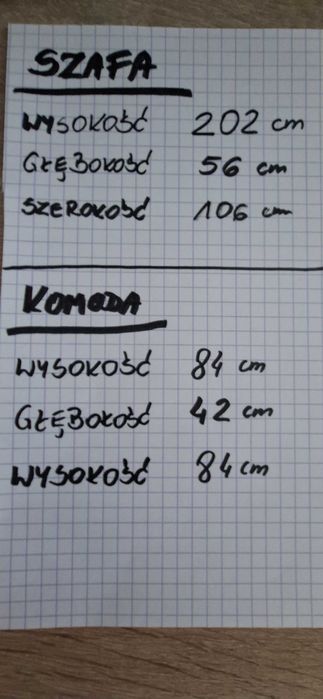 SZAFA
WYSOKOŚĆ 202 cm
GŁĘBOKOŚĆ 56 cm
SZEROKOŚĆ 106 cm
KOMODA
WYSOKOŚĆ 84 cm
GŁĘBOKOŚĆ 42 cm
WYSOKOŚĆ 84 cm